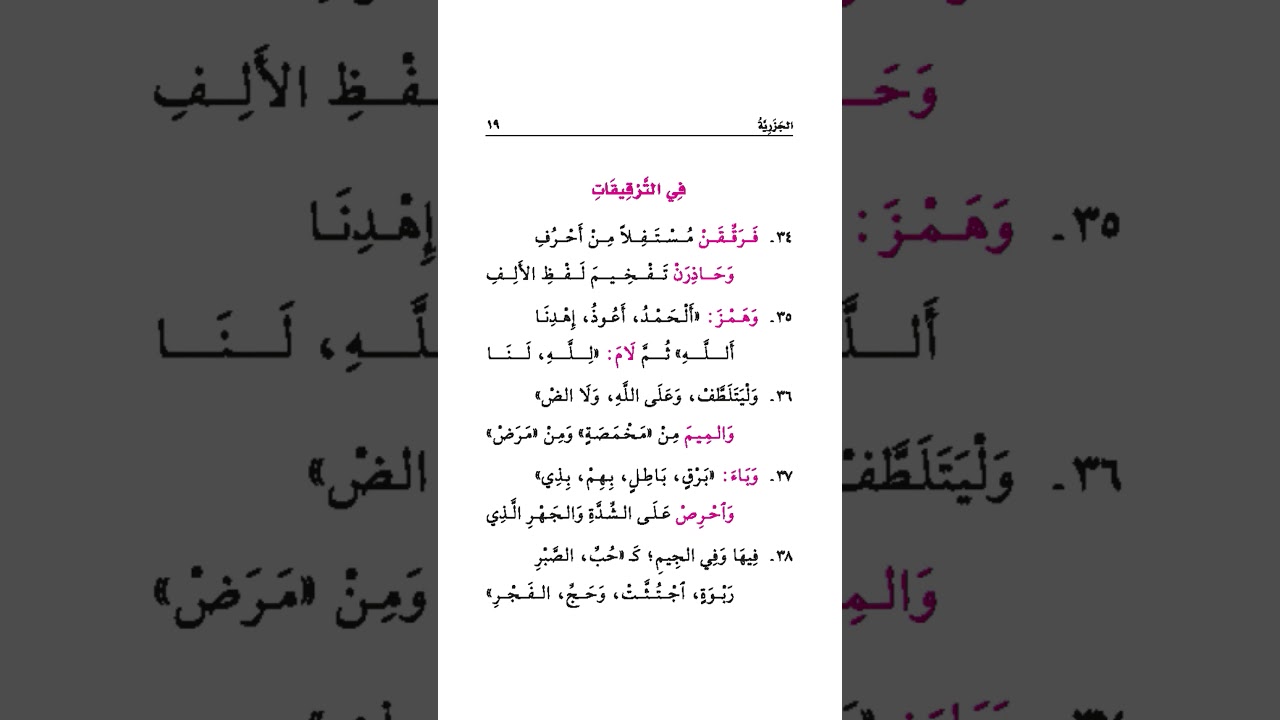 الجَزَرِيَّةُ ١٩
فِي التَّرْقِيقَاتِ
٣٤ـ فَـرَقِّـقَـنْ مُـسْـتَـفِـلاً مِـنْ أَحْـرُفِ
وَحَـاذِرَنْ تَـفْـخِـيـمَ لَـفْـظِ الأَلِـفِ
٣٥ـ وَهَـمْـزَ: «أَلْـحَـمْـدُ، أَعُـوذُ، إِهْـدِنَـا
أَلـلَّـهِ» ثُـمَّ لَامَ: «لِـلَّـهِ، لَـنَـا
٣٦ـ وَلْيَتَلَطَّفْ، وَعَلَى اللَّهِ، وَلَا الضْ»
وَالـمِيمَ مِنْ «مَخْمَصَةٍ» وَمِنْ «مَرَضْ»
٣٧ـ وَبَاءَ: «بَرْقٍ، بَاطِلٍ، بِهِمْ، بِذِي»
وَٱحْرِصْ عَلَى الشِّدَّةِ وَالجَهْرِ الَّذِي
٣٨ـ فِيهَا وَفِي الجِيمِ؛ كَـ «حُبِّ، الصَّبْرِ
رَبْـوَةٍ، ٱجْـتُـثَّـتْ، وَحَـجٌّ، الـفَـجْـرِ»